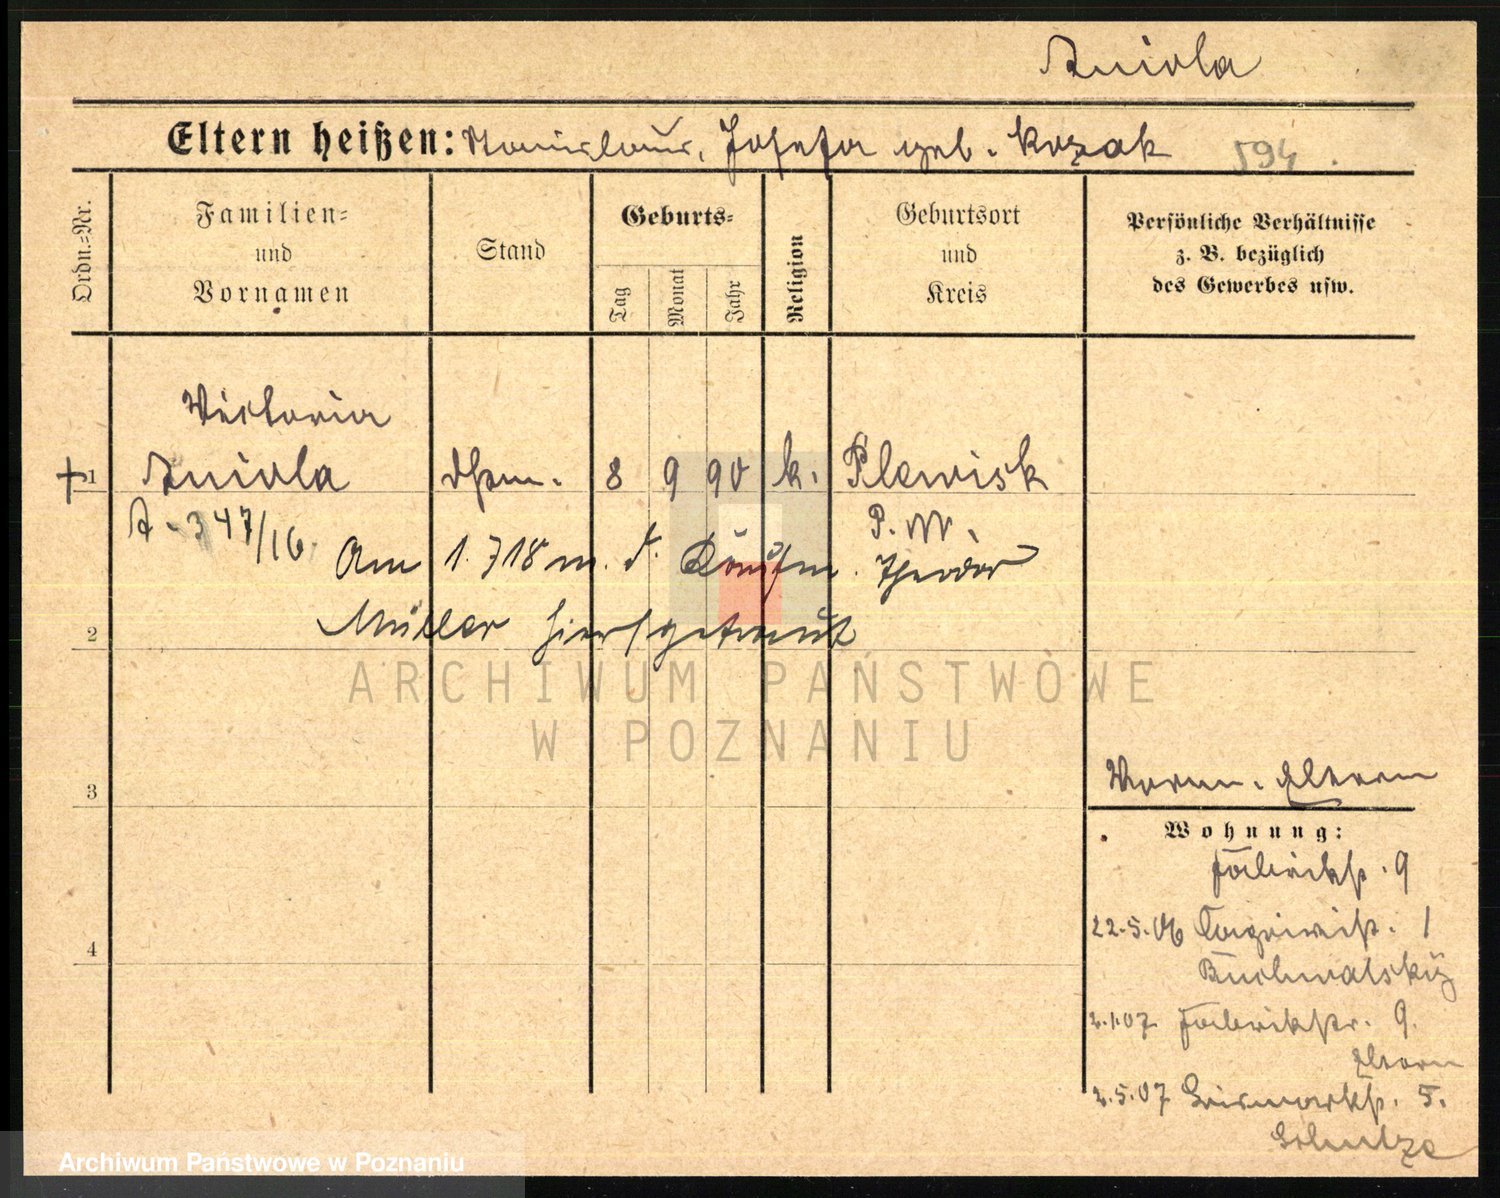 Aniola
Eltern heißen: Stanislaus, Josefa geb. Kozak 594.
Ordn.=Nr.
Familien=
und
Vornamen
Stand
Geburts=
Tag
Monat
Jahr
Religion
Geburtsort
und
Kreis
Persönliche Verhältnisse
z. B. bezüglich
des Gewerbes usw.
Victoria
1 Aniola 8 9 90 k. Plewisk
A - 347/16. P. W.
Am 1. 7 18 m. d. Kaufm. Theodor
2 Müller hiers. getraut
ARCHIWUM PAŃSTWOWE
W POZNANIU
3
Eltern
Wohnung:
Fabrikstr. 9
4
22.5.06 1
2.1.07 Fabrikstr. 9.
Eltern
2.5.07 Bismarkstr. 5.
Schulze
Archiwum Państwowe w Poznaniu